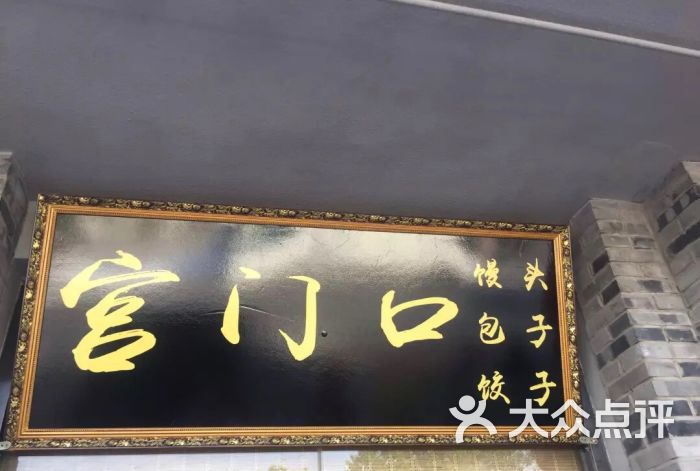 宫门口
馒头
包子
饺子
大众点评